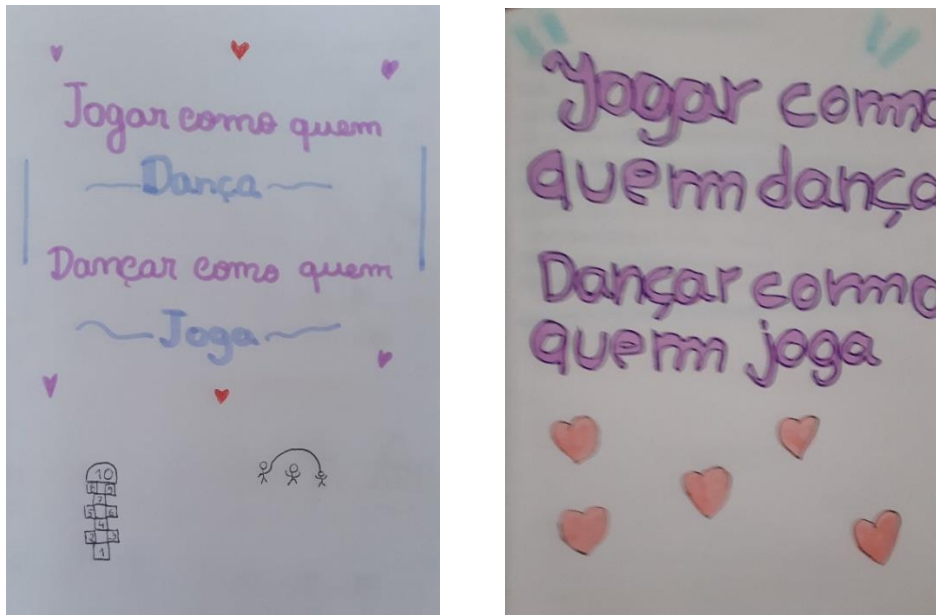 Jogar como quem
Dança
Dançar como quem
Joga
10
8 9
7
5 6
4
2 3
1
Jogar como
quem dança
Dançar como
quem joga